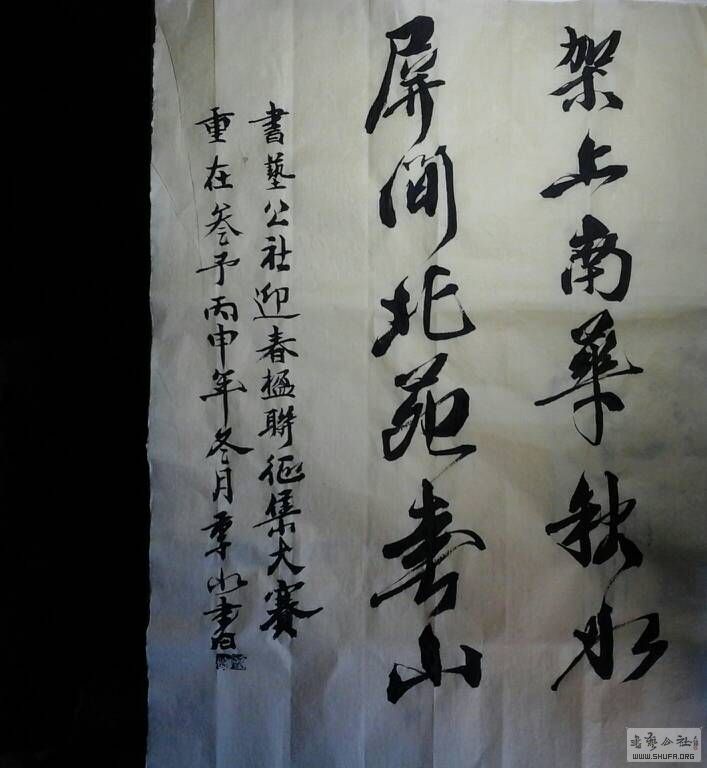 架上南華秋水
屏间北苑春山
書藝公社迎春楹聯征集大賽
重在叁予丙申年冬月季水書
書藝公社
WWW.SHUFA.ORG